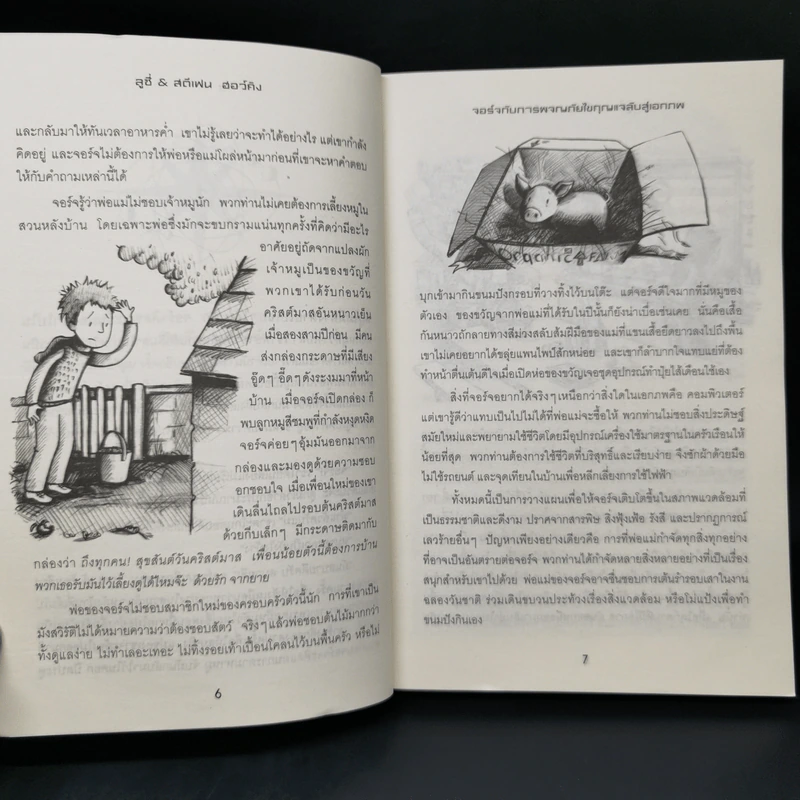 ลูซี่ & สตีเฟน ฮอว์คิง
และกลับมาให้ทันเวลาอาหารค่ำ เขาไม่รู้เลยว่าจะทำได้อย่างไร แต่เขากำลัง
คิดอยู่ และจอร์จไม่ต้องการให้พ่อหรือแม่โผล่หน้ามาก่อนที่เขาจะหาคำตอบ
ให้กับคำถามเหล่านี้ได้
จอร์จรู้ว่าพ่อแม่ไม่ชอบเจ้าหมูนัก พวกท่านไม่เคยต้องการเลี้ยงหมูใน
สวนหลังบ้าน โดยเฉพาะพ่อซึ่งมักจะขบกรามแน่นทุกครั้งที่คิดว่ามีอะไร
อาศัยอยู่ถัดจากแปลงผัก
เจ้าหมูเป็นของขวัญที่
พวกเขาได้รับก่อนวัน
คริสต์มาสอันหนาวเย็น
เมื่อสองสามปีก่อน มีคน
ส่งกล่องกระดาษที่มีเสียง
อู๊ดๆ อี๊ดๆ ดังระงมมาที่หน้า
บ้าน เมื่อจอร์จเปิดกล่อง ก็
พบลูกหมูสีชมพูที่กำลังหงุดหงิด
จอร์จค่อยๆ อุ้มมันออกมาจาก
กล่องและมองดูด้วยความชอบ
อกชอบใจ เมื่อเพื่อนใหม่ของเขา
เดินลื่นไถลไปรอบต้นคริสต์มาส
ด้วยกีบเล็กๆ มีกระดาษติดมากับ
กล่องว่า ถึงทุกคน! สุขสันต์วันคริสต์มาส เพื่อนน้อยตัวนี้ต้องการบ้าน
พวกเธอรับมันไว้เลี้ยงดูได้ไหมจ๊ะ ด้วยรัก จากยาย
พ่อของจอร์จไม่ชอบสมาชิกใหม่ของครอบครัวตัวนี้นัก การที่เขาเป็น
มังสวิรัติไม่ได้หมายความว่าต้องชอบสัตว์ จริงๆ แล้วพ่อชอบต้นไม้มากกว่า
ทั้งดูแลง่าย ไม่ทำเลอะเทอะ ไม่ทิ้งรอยเท้าเปื้อนโคลนไว้บนพื้นครัว หรือไม่
6
จอร์จกับการผจญภัยไขกุญแจลับสู่เอกภพ
บุกเข้ามากินขนมปังกรอบที่วางทิ้งไว้บนโต๊ะ แต่จอร์จดีใจมากที่มีหมูของ
ตัวเอง ของขวัญจากพ่อแม่ที่ได้รับในปีนั้นก็ยังน่าเบื่อเช่นเคย นั่นคือเสื้อ
กันหนาวถักลายทางสีม่วงสลับส้มฝีมือของแม่ที่แขนเสื้อยืดยาวลงไปถึงพื้น
เขาไม่เคยอยากได้ขลุ่ยแพนไพป์สักหน่อย และเขาก็ลำบากใจแทบแย่ที่ต้อง
ทำหน้าตื่นเต้นดีใจเมื่อเปิดห่อของขวัญเจอชุดอุปกรณ์ทำปุ๋ยไส้เดือนใช้เอง
สิ่งที่จอร์จอยากได้จริงๆ เหนือกว่าสิ่งใดในเอกภพคือ คอมพิวเตอร์
แต่เขารู้ดีว่าแทบเป็นไปไม่ได้ที่พ่อแม่จะซื้อให้ พวกท่านไม่ชอบสิ่งประดิษฐ์
สมัยใหม่และพยายามใช้ชีวิตโดยมีอุปกรณ์เครื่องใช้มาตรฐานในครัวเรือนให้
น้อยที่สุด พวกท่านต้องการใช้ชีวิตที่บริสุทธิ์และเรียบง่าย จึงซักผ้าด้วยมือ
ไม่ใช้รถยนต์ และจุดเทียนในบ้านเพื่อหลีกเลี่ยงการใช้ไฟฟ้า
ทั้งหมดนี้เป็นการวางแผนเพื่อให้จอร์จเติบโตขึ้นในสภาพแวดล้อมที่
เป็นธรรมชาติและดีงาม ปราศจากสารพิษ สิ่งฟุ้งเฟ้อ รังสี และปรากฏการณ์
เลวร้ายอื่นๆ ปัญหาเพียงอย่างเดียวคือ การที่พ่อแม่กำจัดทุกสิ่งทุกอย่าง
ที่อาจเป็นอันตรายต่อจอร์จ พวกท่านได้กำจัดหลายสิ่งหลายอย่างที่เป็นเรื่อง
สนุกสำหรับเขาไปด้วย พ่อแม่ของจอร์จอาจชื่นชอบการเต้นรำรอบเสาในงาน
ฉลองวันชาติ ร่วมเดินขบวนประท้วงเรื่องสิ่งแวดล้อม หรือโม่แป้งเพื่อทำ
ขนมปังกินเอง
7